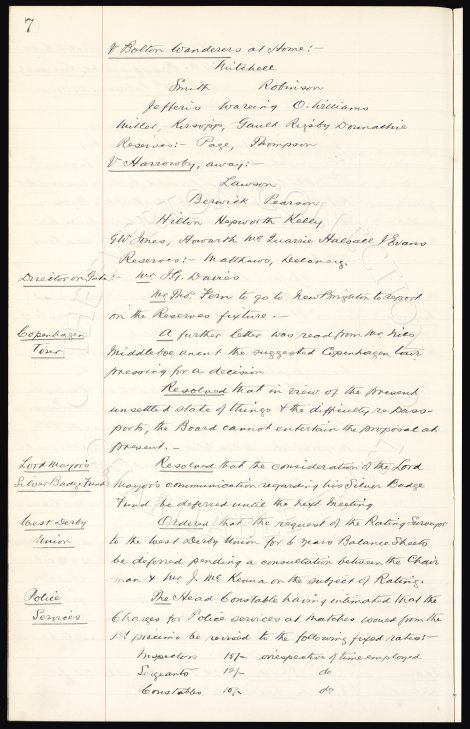 7
V Bolton Wanderers at Home:-
Mitchell
Smith Robinson
Jefferis Wareing O. Williams
Miller, Kirsopp, Gauld Rigsby Donnachie
Reserves:- Page, Thompson
V Harrowby, away:-
Lawson
Berwick Pearson
Hilton Hepworth Kelly
GW Jones, Howarth Mc Quarrie Halsall J Evans
Reserves:- Matthews, Delaney.
Director on Gate:- Mr H. Davies
Mr Thos. Fern to go to New Brighton to report
on the Reserves fixture.-
Copenhagen
Tour
A further letter was read from Mr.
Middleboe anent the suggested Copenhagen tour
pressing for a decision
Resolved that in view of the present
unsettled state of things & the difficulty re pass-
ports, the Board cannot entertain the proposal at
present.-
Lord Mayor's
Silver Badge Fund
Resolved that the consideration of the Lord
Mayor's communication regarding his Silver Badge
Fund be deferred until the next meeting
West Derby
Union
Ordered that the request of the Rating Surveyor
to the West Derby Union for 6 years Balance Sheets
be deferred pending a consultation between the Chair
man & Mr J. McKenna on the subject of Rating.
Police
Services
The Head Constable having intimated that the
Charges for Police services at matches would from the
1st proximo be revised to the following fixed rates:-
Inspectors 15/- irrespective of time employed
Sergeants 12/- do
Constables 10/- do